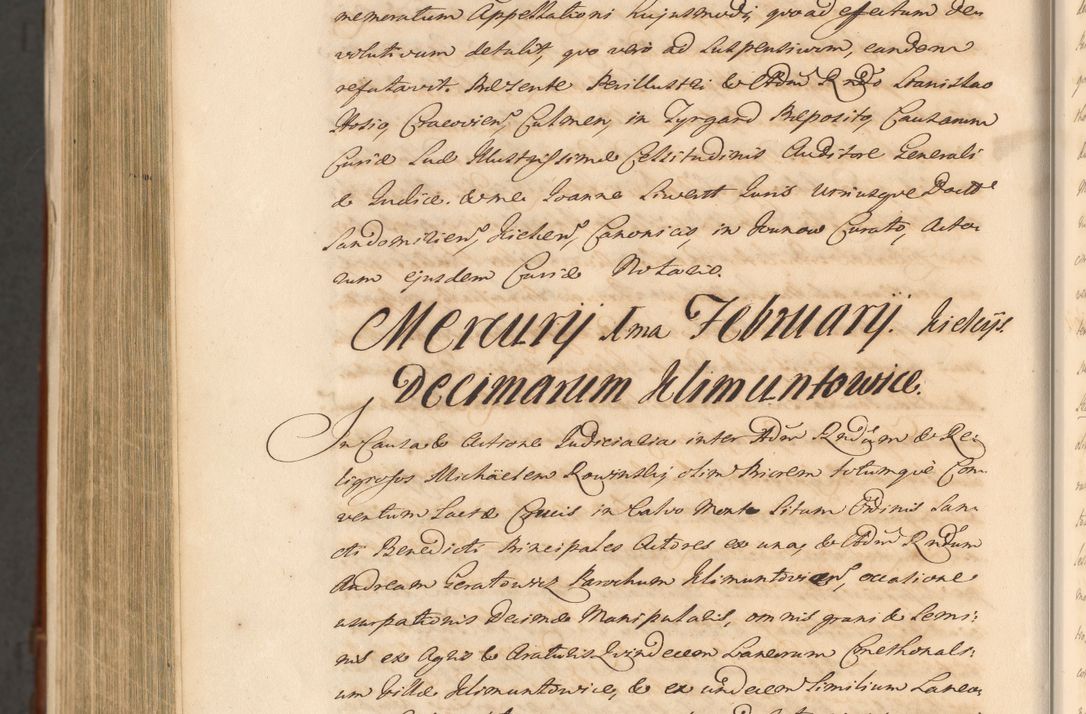 memoratum Appellationi hujusmodi, quoad effectum de
volutivum detulit, quo vero ad suspensivum, eandem
refutavit. Præsente Perillustri & Adm Rndo Stanislao
Hosio, Cracovien, Culmen, in Tyrgard Præposito, Causarum
Curiæ Suæ Illustrissimæ Celsitudinis Auditore Generali
& Iudice. & me Ioanne Siwertt Iuris Utriusque Doctre
Sandomirien, Kielcen, Canonico, in Curato, Acto
rum ejusdem Curiæ Notario.
Mercurij Ima Februarij. Kielcijs
Decimarum Klimuntowice.
In Causa & Actione Iudiciaria inter Adm Rndum & Re-
ligiosos Michäelem Rowinskij olim Priorem totumquè Con-
ventum Sactæ Crucis in Calvo Monte Situm Ordinis San-
cti Benedicti Principales Actores ex una, & Adm Rndum
Andream Geratowicz Parochum Klimuntovien, occasione
usurpationis Decimæ Manipulalis, omnis grani & Semi:
nis ex Agris & Araturis Quindecem Laneorum Cmethonali:
um Villæ Klimuntowice, & ex undecem Similium Laneo,